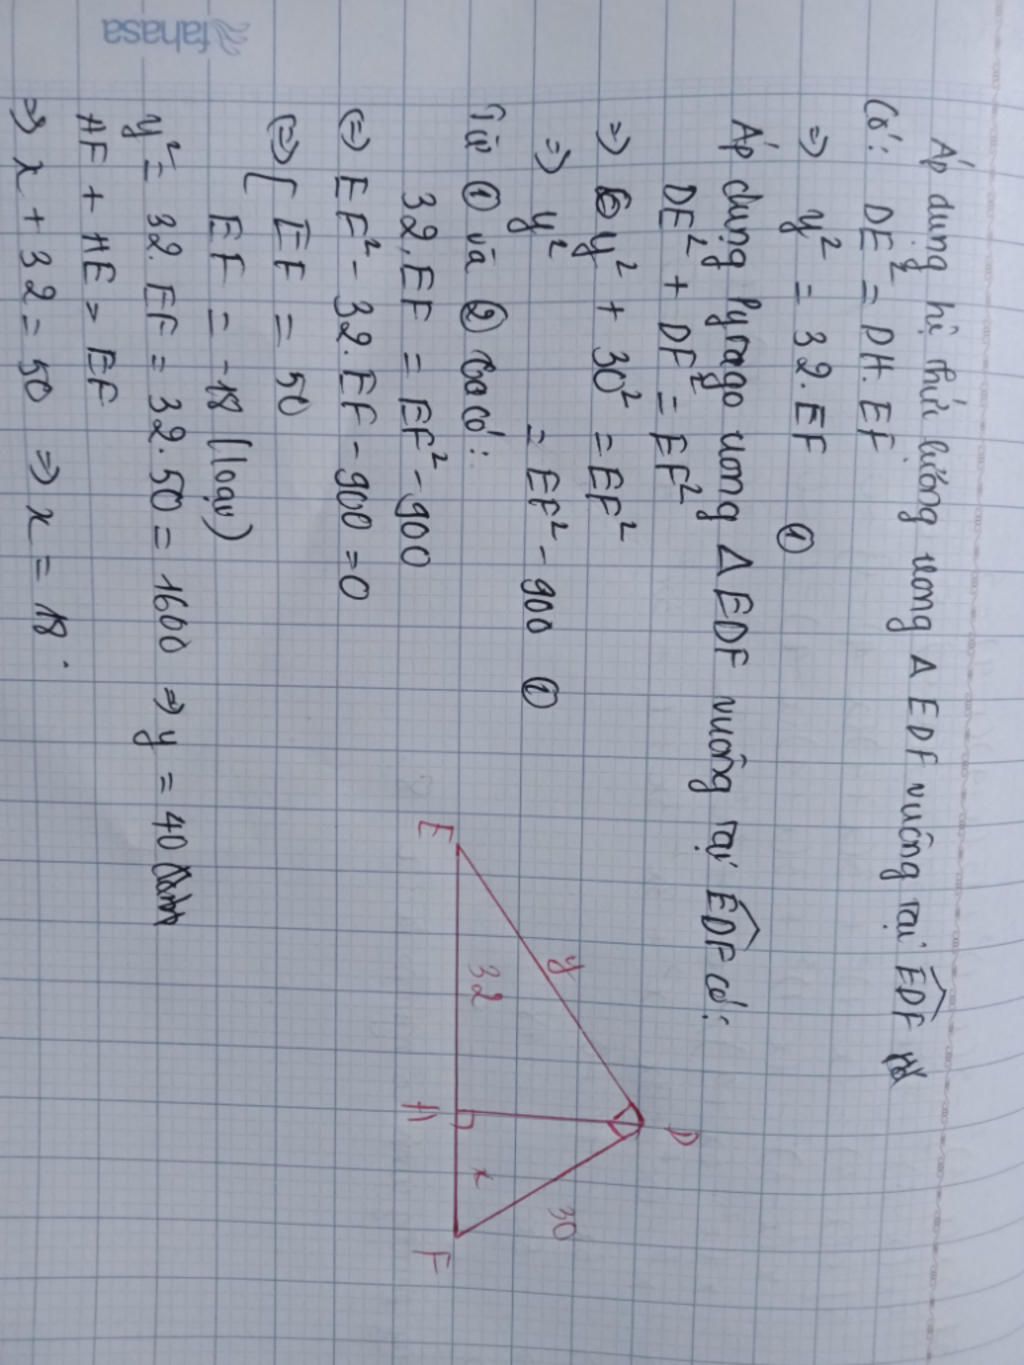 fahasa
Áp dụng hệ thức lượng trong Δ EDF vuông tại EDF
Có: DE² = DH.EF
⇒ y² = 32.EF ①
Áp dụng Pytago trong Δ EDF vuông tại EDF có:
DE² + DF² = EF²
⇒ y² + 30² = EF²
⇒ y² = EF² - 900 ①
Từ ① và ② ta có:
32.EF = EF² - 900
⇔ EF² - 32.EF - 900 = 0
⇔ [ EF = 50
EF = -18 (loại)
y² = 32.EF = 32.50 = 1600 ⇒ y = 40
HF + HE = EF
⇒ x + 32 = 50 ⇒ x = 18.
D
y
30
E
32
H
x
F